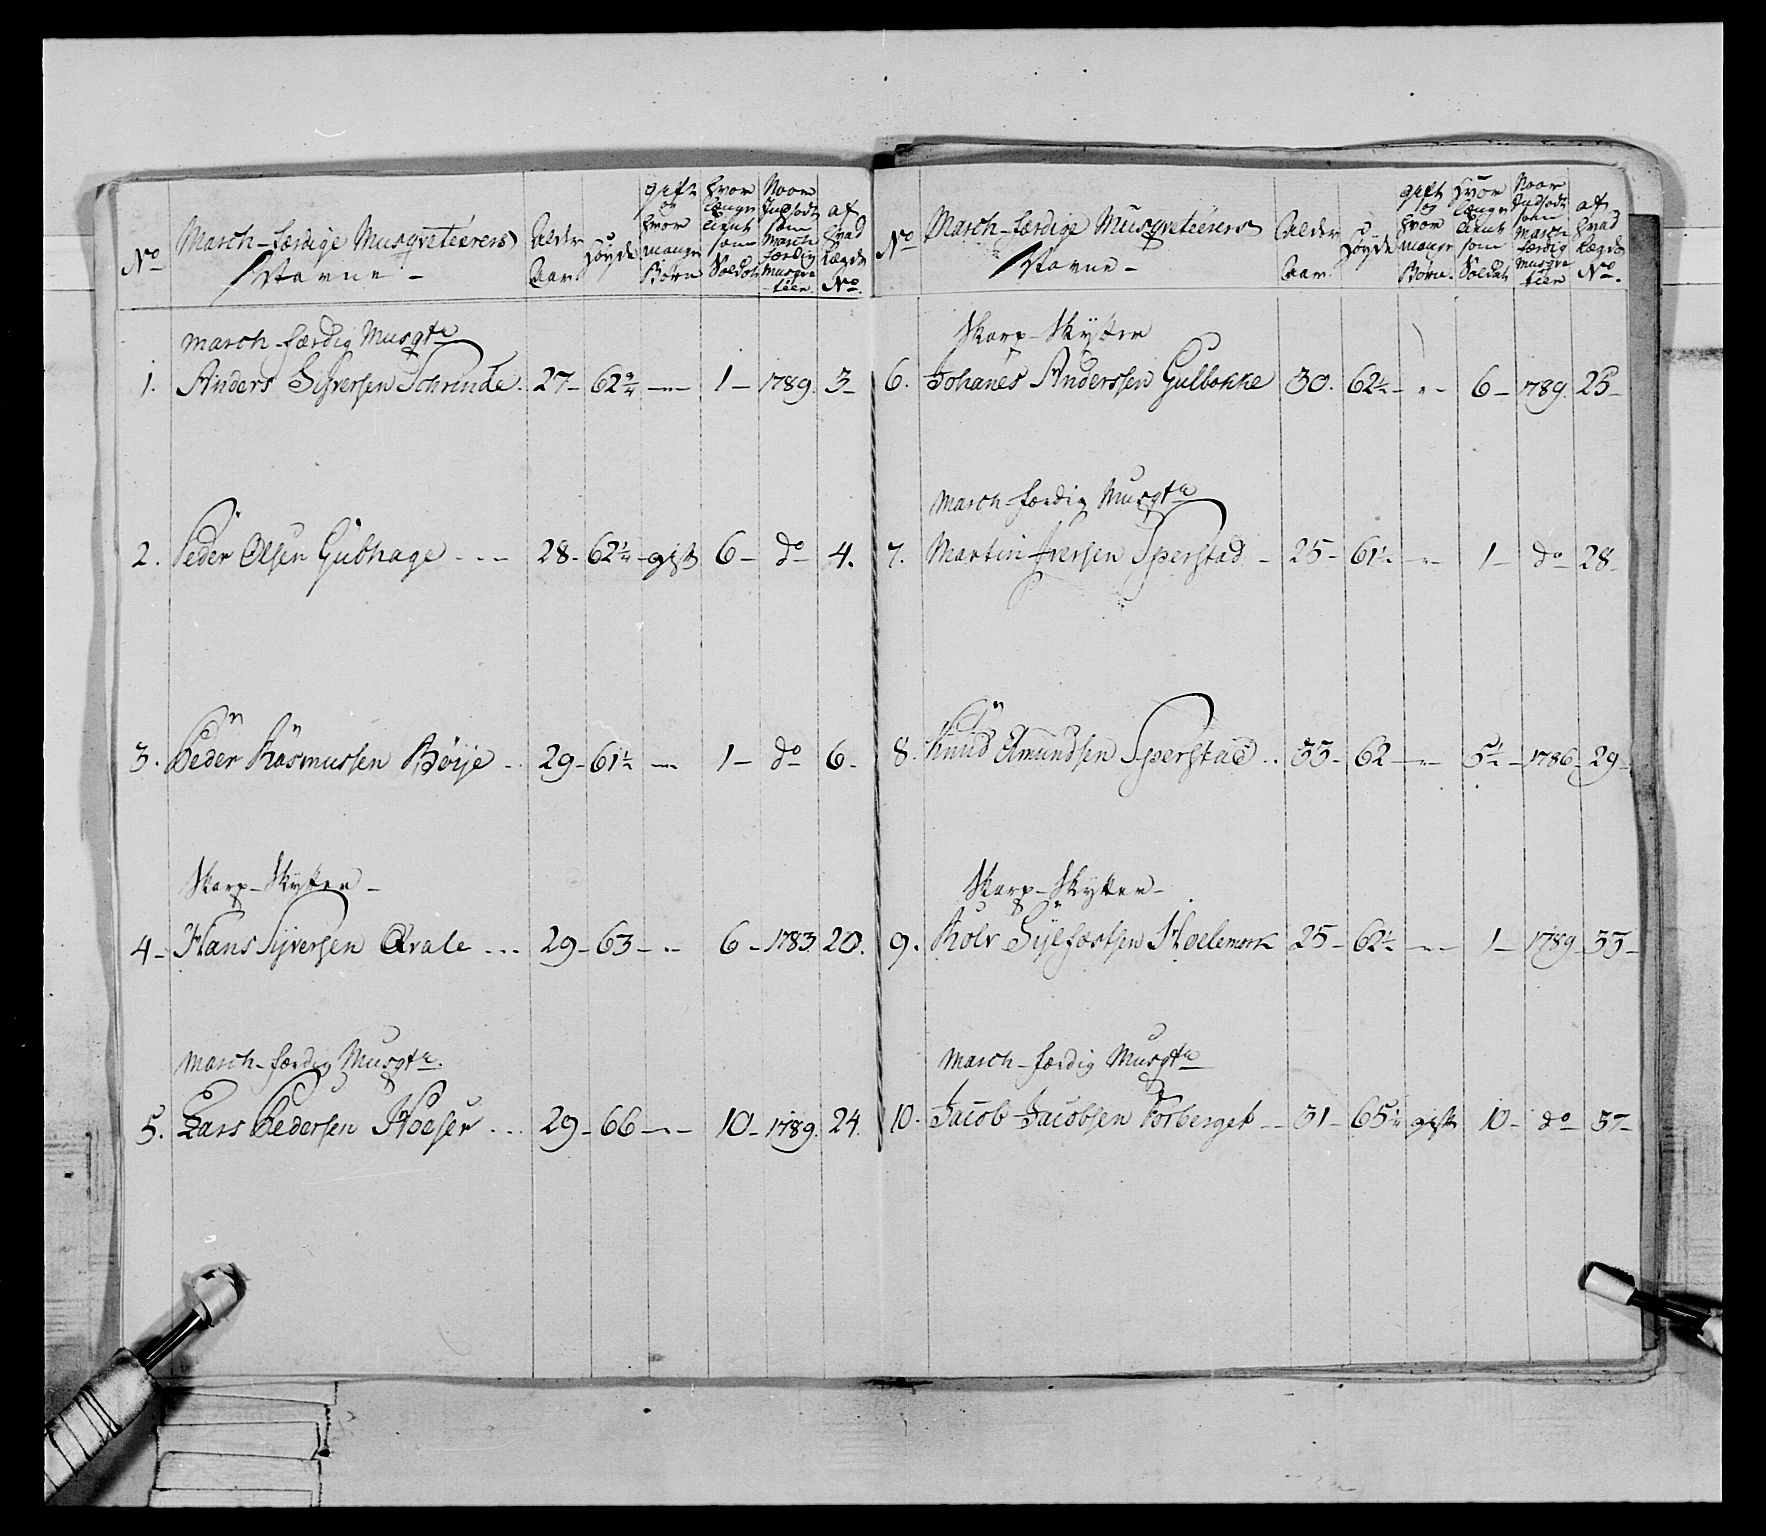 No
March-færdige Musqveteerers
Navne -
Alder
Aar
Høyde
gift
og
hvor
mange
Børn
hvor
længe
tient
som
Soldat
Naar
Indsadt
som
March
færdig
Musqve
teer
af
hvad
Lægds
No.
march-færdig Musqtr
1. Anders Sifversen Schrinde. 27- 62 3/4 -"- 1- 1789. 3-
2. Peder Olsen Gubhage - - - 28- 62 1/4 - gift 6- do 4.
3. Peder Rasmussen Bøye - . 29- 61 1/2 -"- 1- do 6-
Skarp-Skytter -
4- Hans Syversen Qvale - . . 29- 63- "- 6- 1783 20.
march-færdig Musqtr.
5. Lars Pedersen . . . 29- 66-"- 10- 1789. 24.
No
March-færdige Musqveteerers
Navne -
Alder
Aar
Høyde
gift
og
hvor
mange
Børn.
Hvor
længe
tient
som
Soldat
Naar
Indsadt
som
March
færdig
Musqve
teer
af
hvad
Lægds
No.
Skarp-Skytter
6. Johanes Anderssen Gulbakke 30. 62 1/2 - "- 6- 1789. 25-
March-færdig Musqtr
7. Martin Iversen Sperstad - 25- 61 1/2 -"- 1- do 28-
8. Knud Amundsen Sperstad . . 33- 62-"- 5 1/2 - 1786- 29-
Skarp-Skytter-
9. Rolv Sylfæstsen 25- 62 1/2 -"- 1- 1789- 33-
March-færdig Musqtr
10. Jacob Jacobsen Forberget - - 31- 65 1/4 gift 10- do 37-